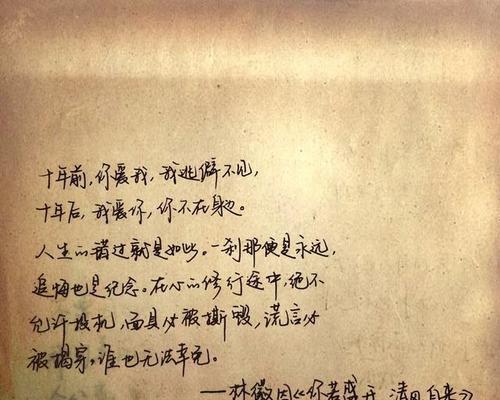 十年前，你爱我，我逃僻不见，
十年后，我爱你，你不在身边。
人生的错过就是如此。一刹那便是永远，
追悔也是纪念。在心的修行途中，绝不
允许投机，面具必被撕毁，谎言必
被揭穿，谁也无法幸免。
——林徽因《你若盛开，清风自来》